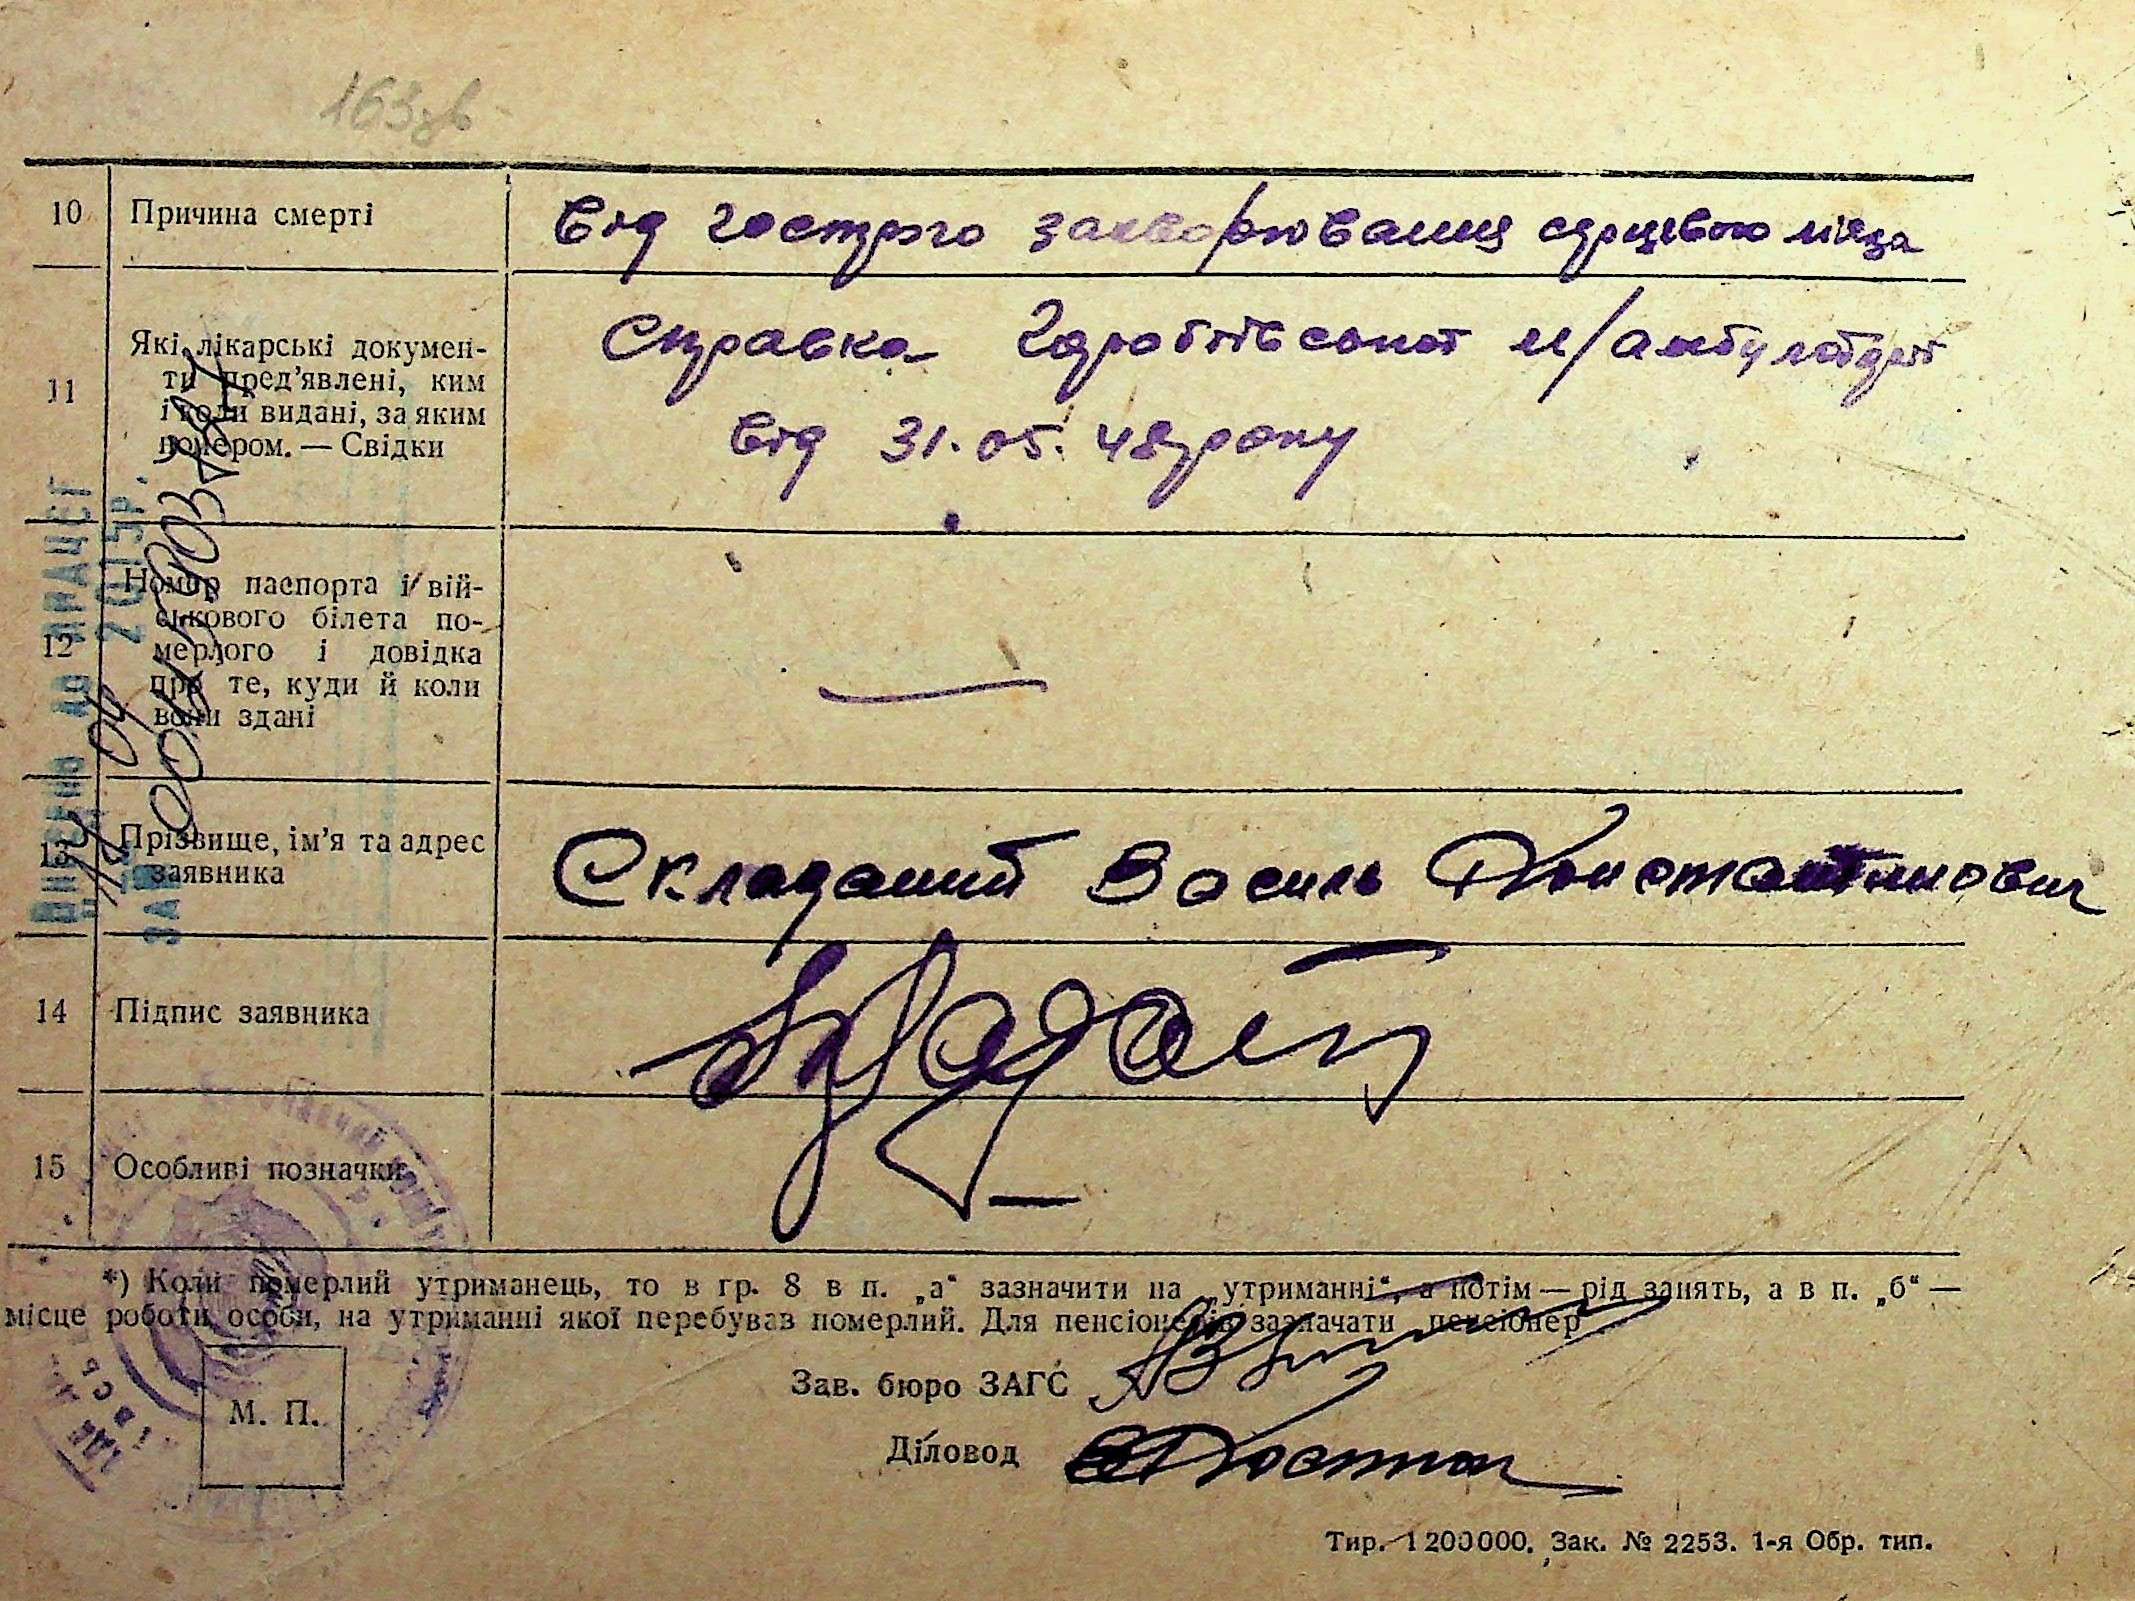 163зв
10 Причина смерті Від гострого захворювання сердцевого
11 Які лікарські докумен-
ти пред'явлені, ким
і коли видані, за яким
номером. — Свідки
Справка м/амбулаторії
від 31.05. року
12 Номер паспорта і вій-
ськового білета по-
мерлого і довідка
про те, куди й коли
вони здані
—
13 Прізвище, ім'я та адрес
заявника
Складаний Василь Константинович
14 Підпис заявника
15 Особливі позначки —
*) Коли померлий утриманець, то в гр. 8 в п. „а“ зазначити на „утриманні“, а потім — рід занять, а в п. „б“ —
місце роботи особи, на утриманні якої перебував померлий. Для пенсіонерів зазначати „пенсіонер“.
Зав. бюро ЗАГС
Діловод
М. П.
Тир. 1200000. Зак. № 2253. 1-я Обр. тип.